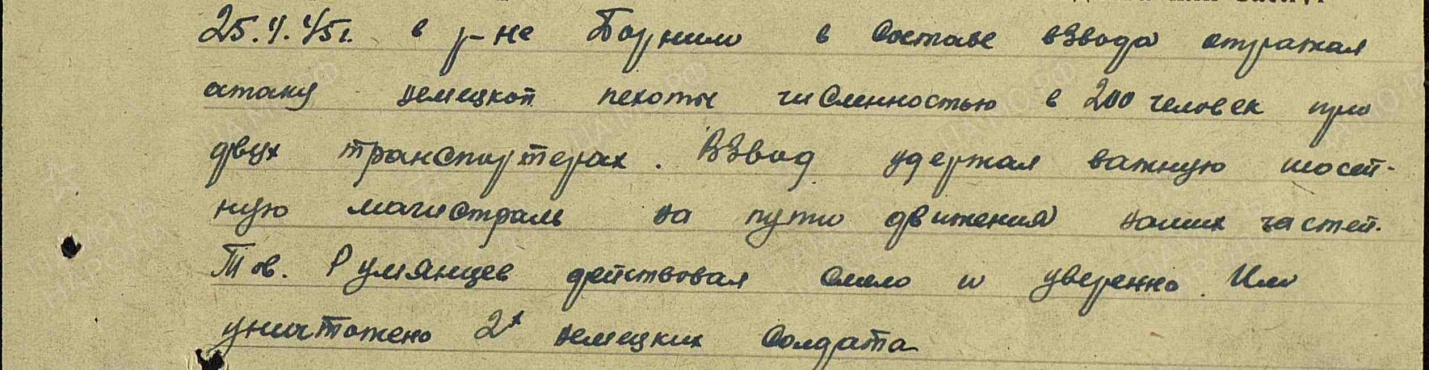 25.4.45г. в р-не Борнимо в составе взвода отражал
атаку немецкой пехоты численностью в 200 человек при
двух транспортерах. Взвод удержал важную шосей-
ную магистраль на пути движения наших частей.
Тов. Румянцев действовал смело и уверенно. Им
уничтожено 2х немецких солдата